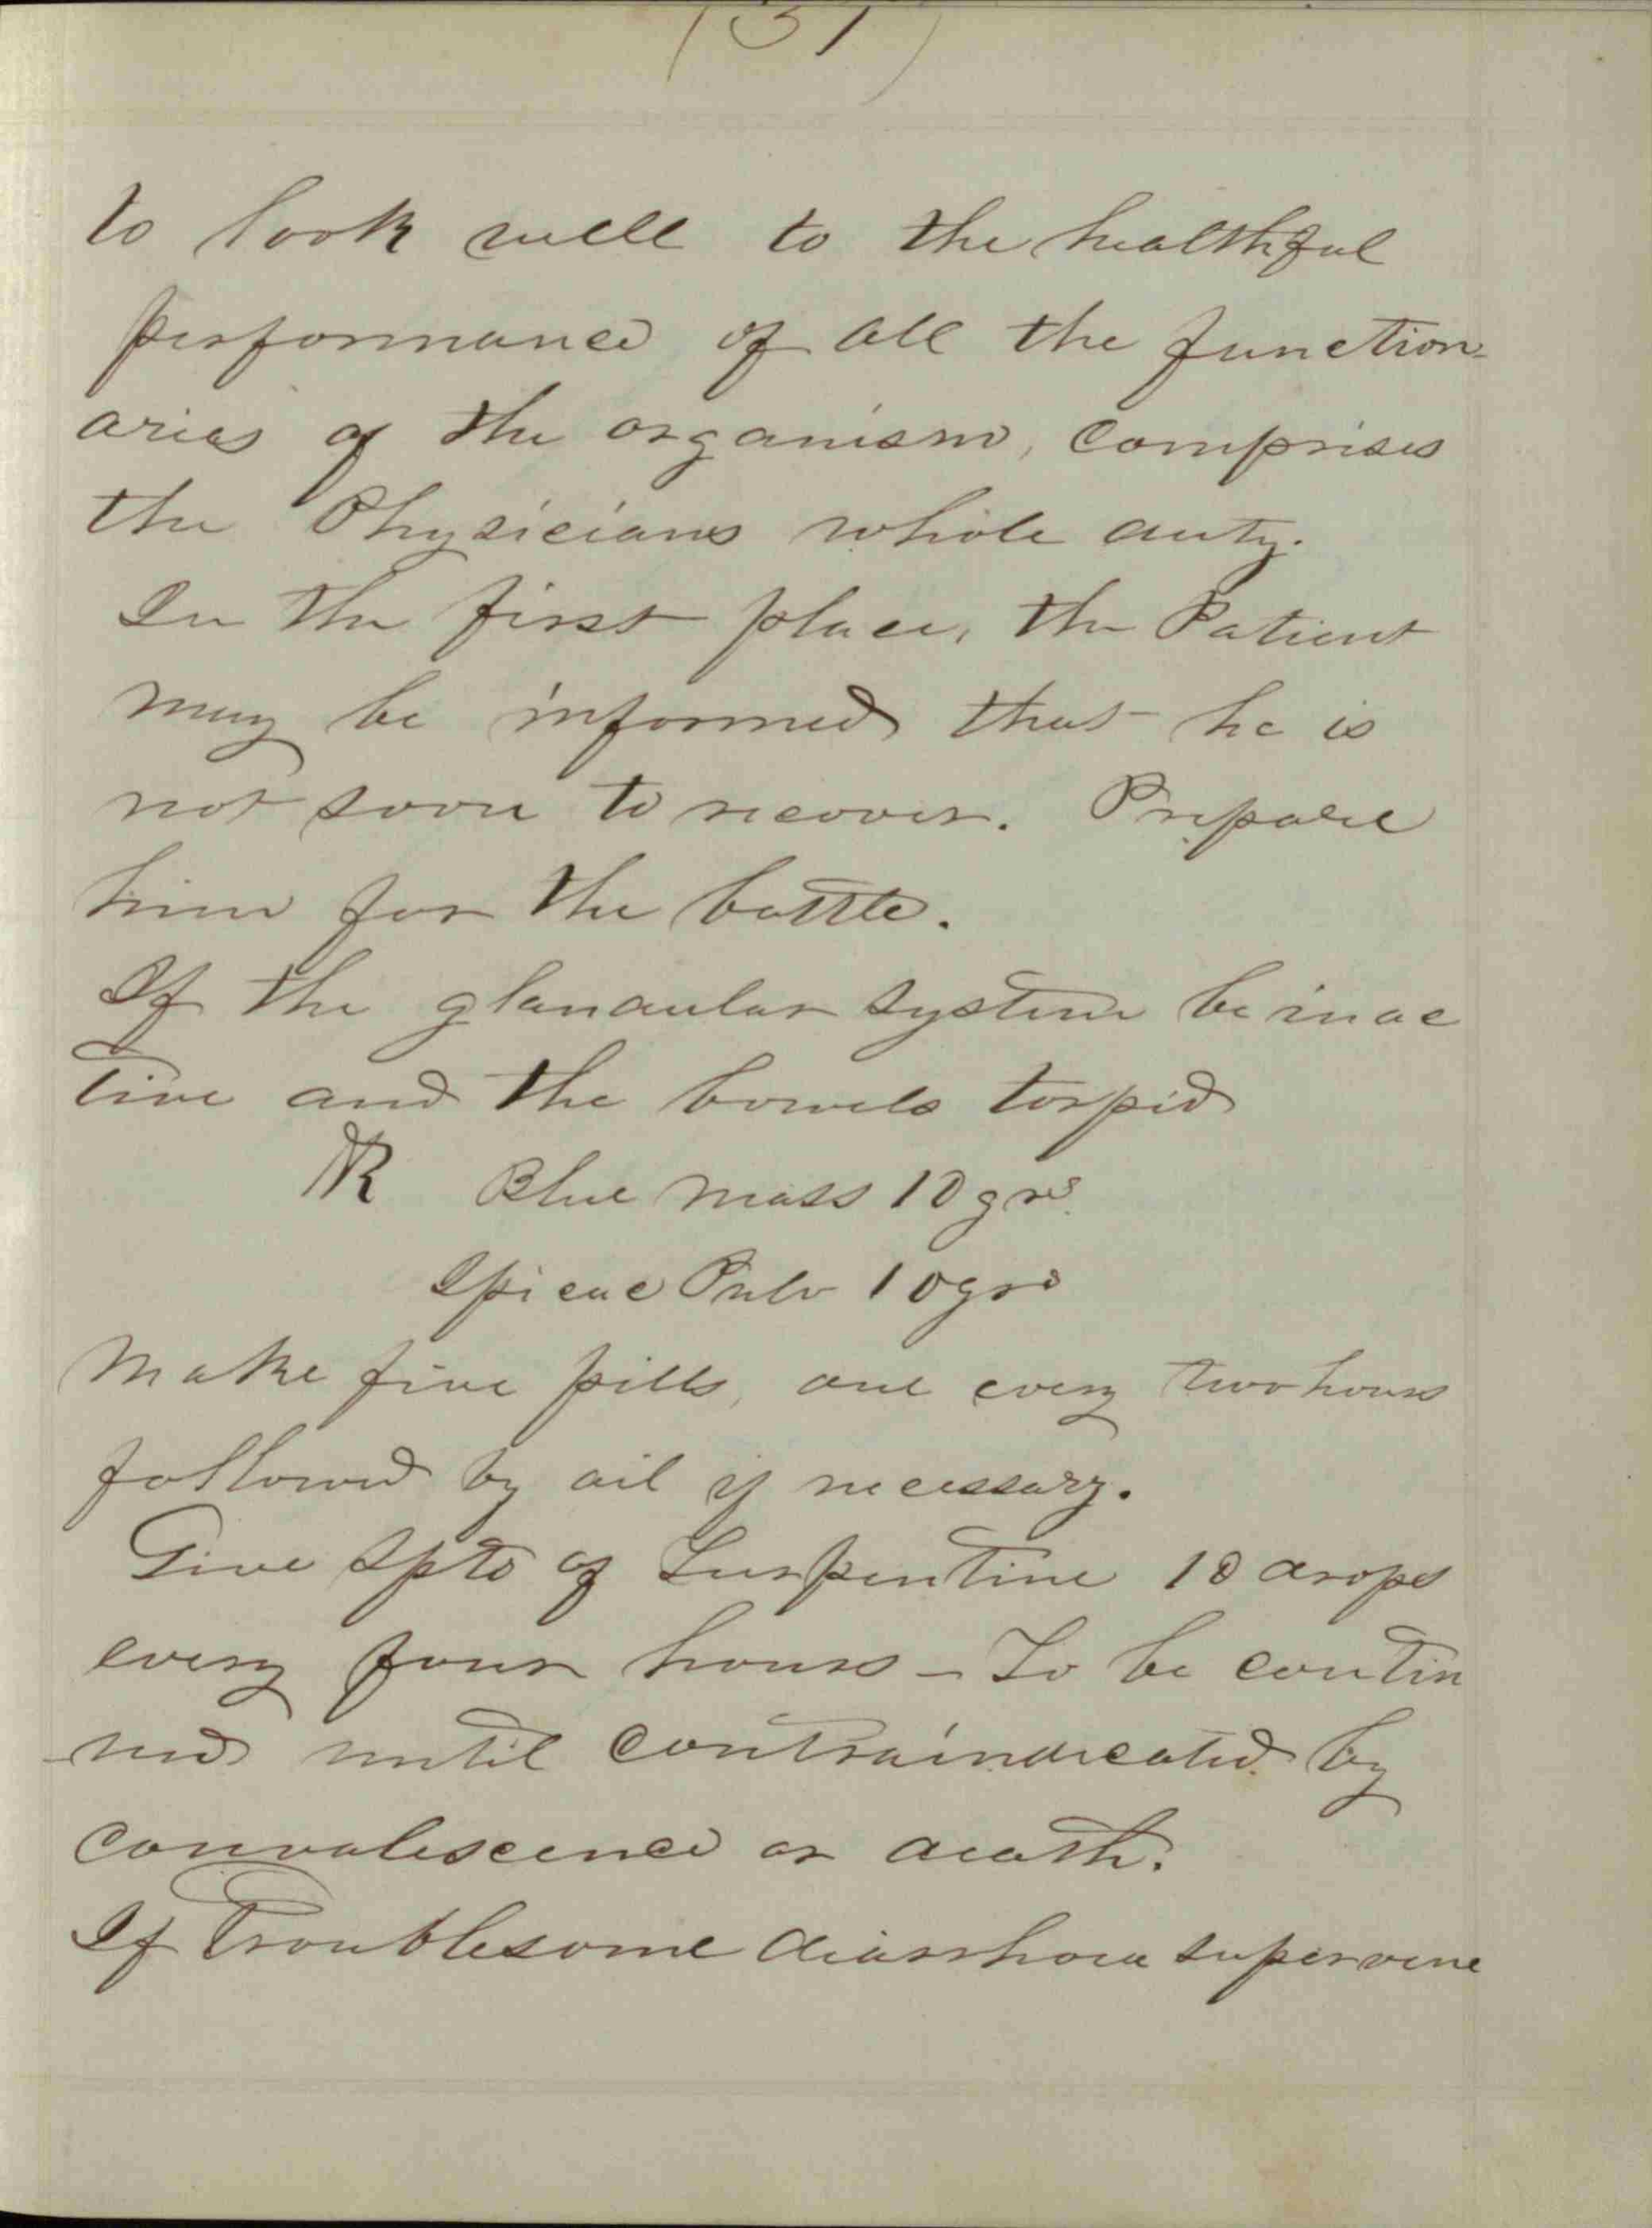 (31)
to look well to the healthful
performance of all the function-
aries of the organism, comprises
the Physicians whole duty.
In the first place, the Patient
may be informed that he is
not soon to recover. Prepare
him for the battle.
If the glandular system be inac
tive and the bowels torpid
℞ Blue mass 10 grs
Ipicac Pulv 10 grs
Make five pills, one every two hours
followed by oil if necessary.
Give Spts of Turpentine 10 drops
every four hours - To be contin
-ued until contraindicated by
convalescence or death.
If Troublesome diarrhoea supervene